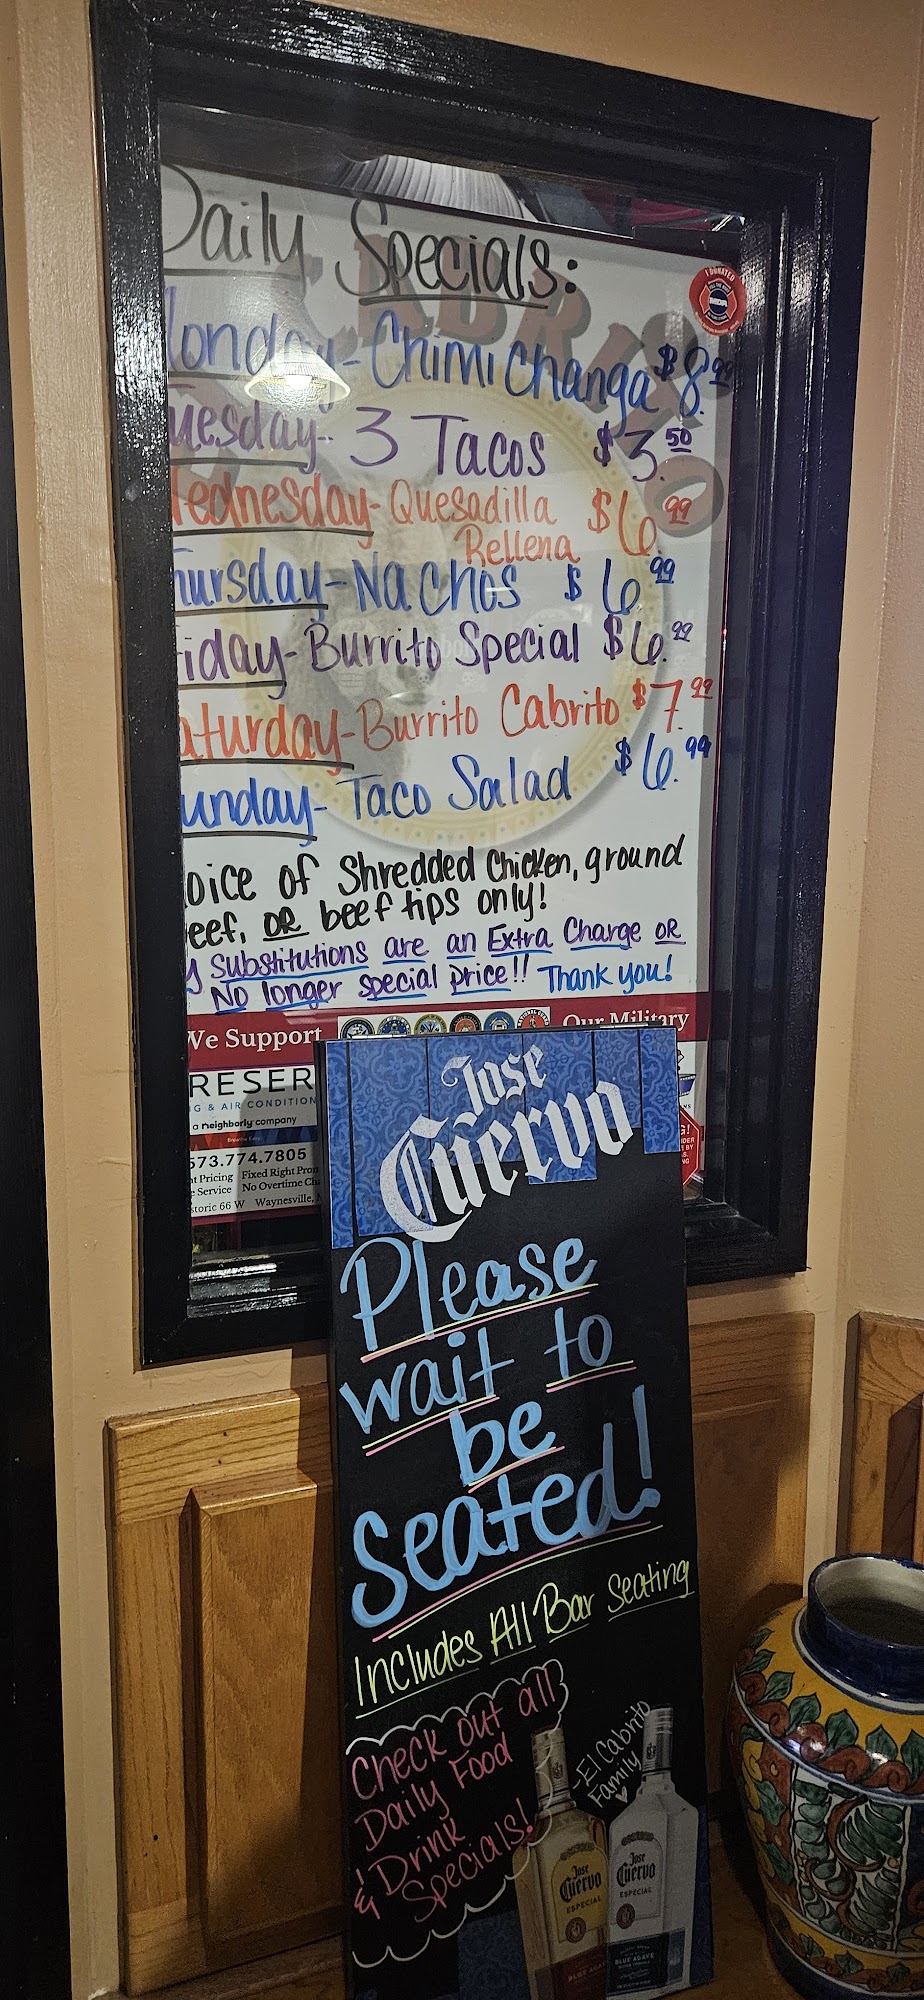 Daily Specials:
I DONATED
CABRITO
Monday-Chimichanga $8.99
Tuesday-3 Tacos $3.50
Wednesday-Quesadilla $6.99
Rellena
Thursday-Nachos $6.99
Friday-Burrito Special $6.99
Saturday-Burrito Cabrito $7.99
Sunday-Taco Salad $6.99
oice of Shredded Chicken, ground
eef, OR beef tips only!
y Substitutions are an Extra Charge OR
No longer special price!! Thank you!
We Support Our Military
RESER
G & AIR CONDITION
a neighborly company
573.774.7805
nt Pricing Fixed Right Pro
e Service No Overtime Ch
storic 66 W Waynesville,
Jose
Cuervo
Please
wait to
be
Seated!
Includes All Bar Seating
Check out all
Daily Food
& Drink
Specials!
-El Cabrito
Family
Jose
Cuervo
ESPECIAL
Jose
Cuervo
ESPECIAL
BLUE AGAVE
BLUE AGAVE